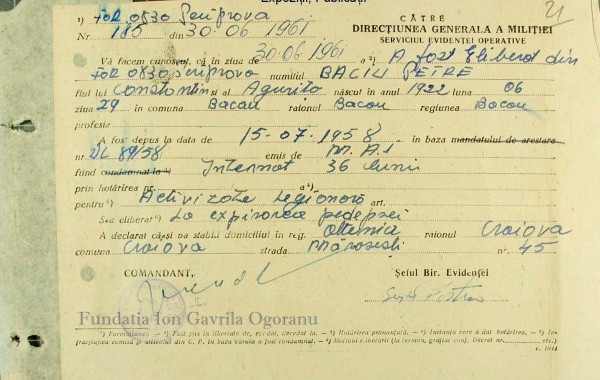 Expoziții, Publicații
21
¹) For 0830 Periprava
Nr 185 din 30.06 1961
CĂTRE
DIRECȚIUNEA GENERALA A MILIȚIEI
SERVICIUL EVIDENȚEI OPERATIVE
Vă facem cunoscut, că în ziua de 30.06 1961 a ²) A fost Eliberat din
For 0830 Periprava numitul BACIU PETRE
fiul lui Constantin și al Agurita născut în anul 1922 luna 06
ziua 29 în comuna Bacau raionul Bacau regiunea Bacau
profesia
A fost depus la data de 15-07-1958 în baza mandatului de arestare
nr. 89/58 emis de M.A.I
fiind condamnat la ³) Internat 36 luni
prin hotărîrea nr. a ⁴)
pentru ⁵) Activizate Legionara art.
S-a eliberat ⁶) La expirarea pedepsei
A declarat că-și va stabili domiciliul în reg. Oltenia raionul Craiova
comuna Craiova strada Mărasesti nr. 45
COMANDANT,
Șeful Bir. Evidenței
Fundatia Ion Gavrila Ogoranu
¹) Formațiunea. — ²) Fost pus în libertate, evadat, decedat la. — ³) Hotărîrea pronunțată. — ⁴) Instanța care a dat hotărîrea. — ⁵) In-
fracțiunea comisă și articolul din C. P. în baza căruia a fost condamnat. — ⁶) Motivul eliberării (la termen, grațiat conf. Decret nr. etc.)